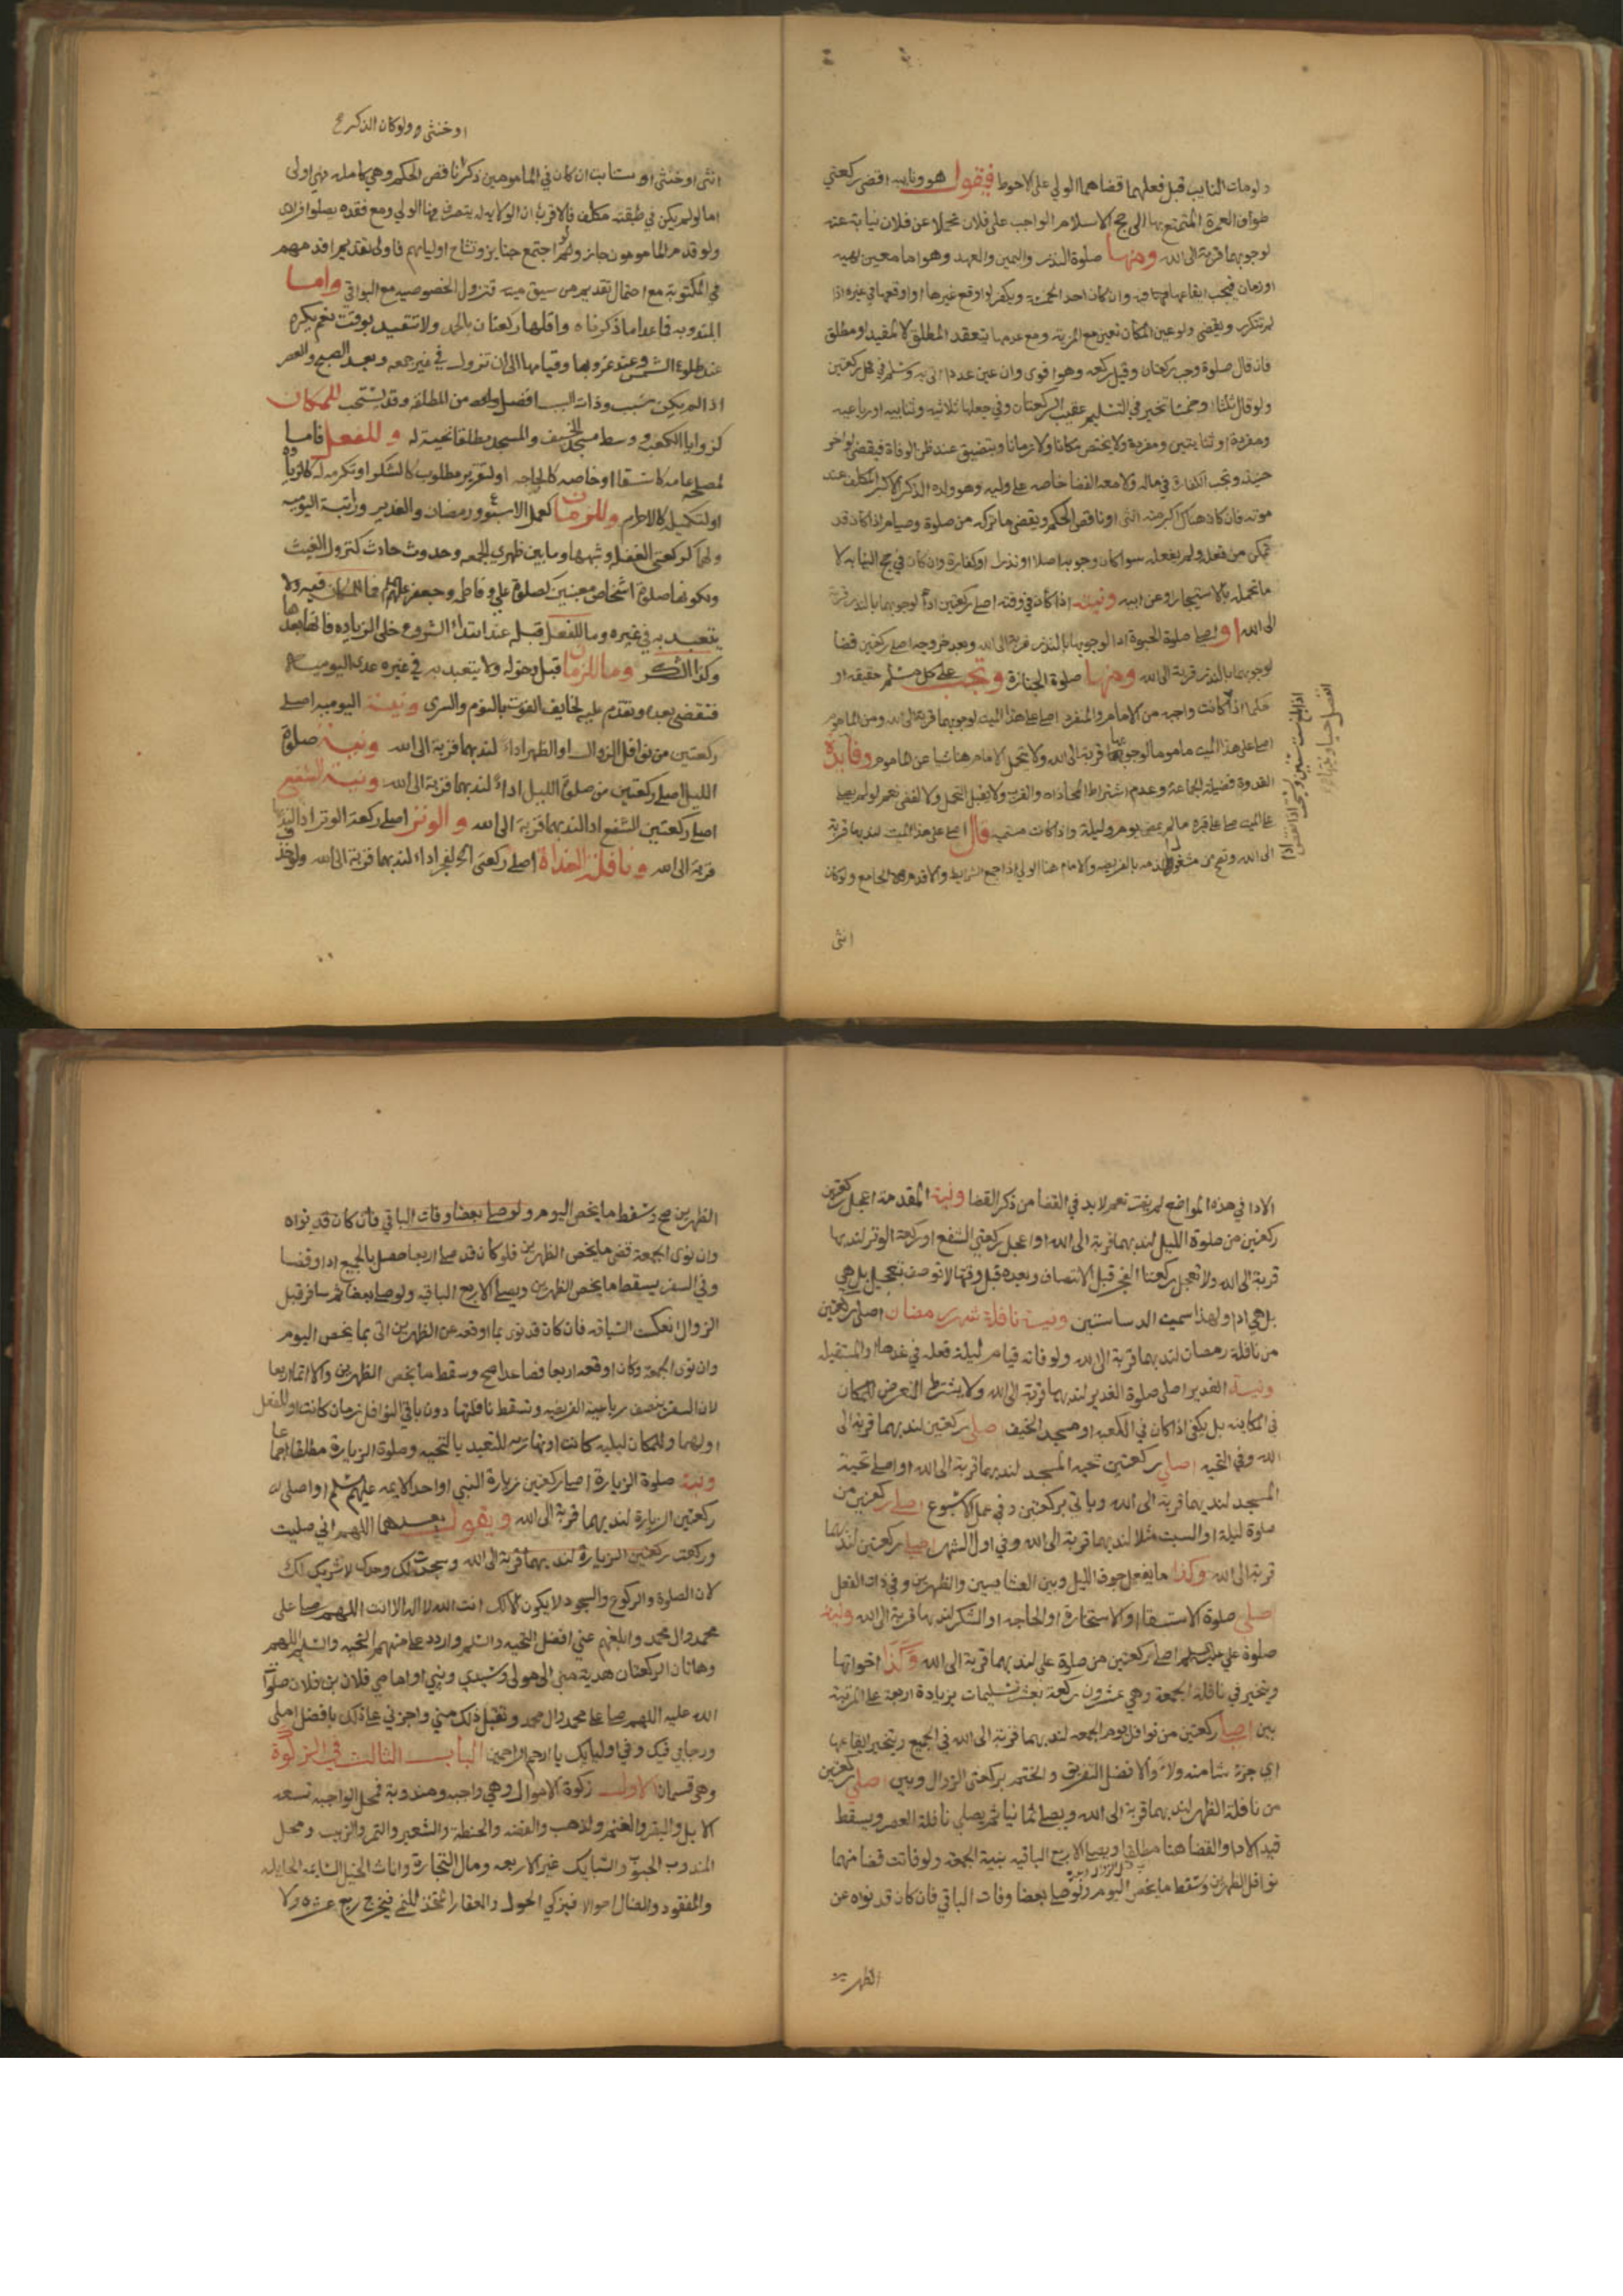 ولو مات النايب قبل فعلهما قضاهما الولي على الاحوط فيقول هو ونايبه اقضي ركعتي
طواف العمرة المتمتع بها الى حج الاسلام الواجب على فلان تحملا عن فلان نيابة عنه
لوجوبهما قربة الى الله ومنها صلوة النذر واليمين والعهد وهو اما معين بهيه
او زمان فيجب ايقاعها فيه وان كان احد الخمسة ويكفر لو اوقع غيرها او اوقعها في غيره اذا
لم تتكرر ويقضي ولو عين المكان تعين مع المزية ومع عدمها ينعقد المطلق لا المقيد او مطلق
فان قال صلوة وجب ركعتان وقيل ركعه وهو اقوى وان عين عددا اتى به وسلم في كل ركعتين
ولو قال ثلثا او خمسا تخير في التسليم عقيب الركعتان وفي جعلها ثلاثيه وثنائيه او رباعيه
ومفردة او ثنايتين ومفردة ولا يختص مكانا ولا زمانا ويتضيق عند ظن الوفاة فيقضي لو اخر
حينئذ وتجب الكفارة في ماله ولا معه القضا خاصه على وليه وهو ولده الذكر الاكبر المكلف عند
موته فان كان هناك اكبر منه انثى او ناقص الحكم ويقضي ما تركه من صلوة وصيام اذا كان قد
تمكن من فعله ولم يفعله سوا كان وجوبه اصلا او نذرا او كفارة وان كان في حج النيابه لا
ما تحمله بالاستيجار وعن ابيه ونيته اذا كان في وقته اصلي ركعتين اداء لوجوبهما بالنذر قربة
الى الله او اصلي صلوة الحبوة اداء لوجوبها بالنذر قربة الى الله وبعد خروجه اصلي ركعتين قضا
لوجوبهما بالنذر قربة الى الله ومنها صلوة الجنازة وتجب على كل مسلم حقيقه او
حكما اذا كانت واجبه من الامام والمنفرد اصلي على هذا الميت لوجوبها قربة الى الله ومن الماموم
اصلي على هذا الميت ماموما لوجوبها قربة الى الله ولا يتحمل الامام هنا شيا عن الماموم وفايدة
القدوة فضيلة الجماعة وعدم اشتراط المحاذاه والقرب ولا يقبل التحمل ولا القضى نعم لو لم يصل
على الميت صلى على قبره ما لم يمض يوم وليلة واذا كانت مستحبه قال اصلي على هذا الميت لندبها قربة
الى الله وتصح من مشغول الذمه بالفريضه والامام هنا الولي اذا جمع الشرايط والا قدم الجامع ولو كان
انثى
او خنثى ولو كان الذكر
انثى او خنثى او ستا بت ان كان في المامومين ذكرا ناقص الحكم وهي كامله فهي اولى
اما لو لم يكن في طبقته مكلف فالاقرب ان الولايه له يتصرف فيها الولي ومع فقده يصلوا فرادى
ولو قدم المامومون جاز ولو اجتمع جنايز وتشاح اولياهم فاولى بتقديم اقدمهم
في المكتوبة مع احتمال تقديم من سبق ميته قنزول الخصوصيه مع البواقي واما
المندوبه فما عدا ما ذكرناه واقلها ركعتان بالحمد ولا تتقيد بوقت نعم يكره
عند طلوع الشمس وعند غروبها وقيامها الى ان تزول في غير جمعه وبعد الصبح والعصر
اذا لم يكن سبب وذات السبب افضل من المطلقه وقد يستحب للمكان
كزوايا الكعبه ووسط مسجد الخيف والمسجد مطلقا تحية له وللفعل فاما
لمصلحه عامه كاستسقا او خاصه كالحاجه او لتقرير مطلوب كالشكر او تكرمه له كالزيارة
او لتكميل كالاحرام وللزمان كعمل الاسبوع ورمضان والغدير وراتبة اليوميه
ولهما كركعتي الغفله وشبهها وما بين ظهري الجمعه وحدوث حادث كنزول الغيث
ولكونها صلوة اشخاص معينين كصلوة علي وفاطمه وجعفر عليهم فما للمكان فيه ولا
يتعبد به في غيره وما للفعل قبله عند ابتداء الشروع خلى الزياده فانها بعدها
وكذا الشكر وما للزمان قبل دخوله ولا يتعبد به في غيره عدى اليوميه
فتقضى بعده وتقدم عليه لخايف الفوت بالنوم والسرى ونية اليوميه اصلي
ركعتين من نوافل الزوال او الظهر اداء لندبهما قربة الى الله ونية صلوة
الليل اصلي ركعتين من صلوة الليل اداء لندبهما قربة الى الله ونية الشفع
اصلي ركعتين الشفع اداء لندبهما قربة الى الله والوتر اصلي ركعة الوتر اداء لندبها
قربة الى الله ونافلة الغداة اصلي ركعتي الفجر اداء لندبهما قربة الى الله ولو حذف
الادا في هذه المواضع لم يفت نعم لابد في القضا من ذكر القضا ونية المقدمة اعجل ركعتين
ركعتين من صلوة الليل لندبهما قربة الى الله او اعجل ركعتي الشفع او ركعة الوتر لندبها
قربة الى الله ولا تعجل ركعتا الفجر قبل الانتصاف وبعده قبل وقتها لا توصف بتعجيل بل هي
بل هي ادا ولهذا سميت الدساستين ونية نافلة شهر رمضان اصلي ركعتين
من نافلة رمضان لندبهما قربة الى الله ولو فاته قيام ليلة فعله في غدها والمستقبله
ونية الغدير اصلي صلوة الغدير لندبهما قربة الى الله ولا يشترط التعرض للمكان
في المكانيه بل يكفي اذا كان في الكعبه او مسجد الخيف اصلي ركعتين لندبهما قربة الى
الله وفي التحيه اصلي ركعتين تحية المسجد لندبهما قربة الى الله او اصلي تحية
المسجد لندبهما قربة الى الله وياتي بركعتين وفي عمل الاسبوع اصلي ركعتين من
صلوة ليلة او السبت مثلا لندبهما قربة الى الله وفي اول الشهر اصلي ركعتين لندبهما
قربة الى الله وكذا ما يفعل جوف الليل وبين العشايين والظهرين وفي ذات الفعل
اصلي صلوة الاستسقا او الاستخارة او الحاجه او الشكر لندبها قربة الى الله ونية
صلوة علي عليه السلام اصلي ركعتين من صلوة علي لندبهما قربة الى الله وكذا اخواتها
ويتخير في نافلة الجمعة وهي عشرون ركعة بعشر تسليمات بزيادة اربعة على المرتبة
بين اصلي ركعتين من نوافل يوم الجمعه لندبهما قربة الى الله في الجميع ويتخير ايقاعها
اي جزء شا منه ولاء والافضل التفريق والختم بركعتي الزوال وبين اصلي ركعتين
من نافلة الظهر لندبهما قربة الى الله ويصلي ثمانيا ثم يصلي نافلة العصر ويسقط
قيد الادا والقضا هنا مطلقا ويصلي الاربع الباقيه بنية الجمعة ولو فاتت قضا منها
نوافل الظهرين وسقط ما يخص اليوم ولو صلى بعضا وفات الباقي فان كان قد نواه عن
الظهرين
الظهرين صح وسقط ما يخص اليوم ولو صلى بعضا وفات الباقي فان كان قد نواه
وان نوى الجمعة قضى ما يخص الظهرين فلو كان قد صلى اربعا حصل بالجميع ادا وقضا
وفي السفر يسقط ما يخص الظهرين ويصلي الاربع الباقيه ولو صلى بعضا ثم سافر قبل
الزوال انعكست الباقيه فان كان قد نوى بما اوقعه عن الظهرين اتى بما يخص اليوم
وان نوى الجمعة وكان اوقعه اربعا فصاعدا صح وسقط ما يخص الظهرين والا اتم اربعا
لان السفر ينصف رباعية الفريضه وتسقط نافلتها دون باقي النوافل زمان كانت او للفعل
او لهما وللمكان ليليه كانت او نهاريه للتعبد بالتحيه وصلوة الزيارة مطلقا اجماعا
ونية صلوة الزيارة اصلي ركعتين زيارة النبي او احد الايمه عليهم السلم او اصلي له
ركعتين الزيارة لندبهما قربة الى الله ويقول بعدهما اللهم اني صليت
وركعت ركعتين الزيارة لندبهما قربة الى الله وسجدت لك وحدك لا شريك لك
لان الصلوة والركوع والسجود لا يكون الا لك انت الله لا اله الا انت اللهم صل على
محمد وال محمد وابلغهم عني افضل التحيه والسلم واردد علي منهم التحيه والسلم اللهم
وهاتان الركعتان هدية مني الى مولاي وسيدي ونبيي او امامي فلان بن فلان صلوات
الله عليه اللهم صل على محمد وال محمد وتقبل ذلك مني واجزني على ذلك بافضل املي
ورجايي فيك وفي اوليايك يا ارحم الراحمين الباب الثالث في الزكوة
وهي قسمان الاول زكوة الاموال وهي واجبه ومندوبة فمحل الواجبه تسعه
الابل والبقر والغنم والذهب والفضه والحنطة والشعير والتمر والزبيب ومحل
المندوب الحبوب والسبايك غير الاربعه ومال التجارة واناث الخيل السايمه الحايله
والمفقود والضال احوالا فيزكي لحول والعقار المتخذ للنمي فيخرج ربع عشره ولا